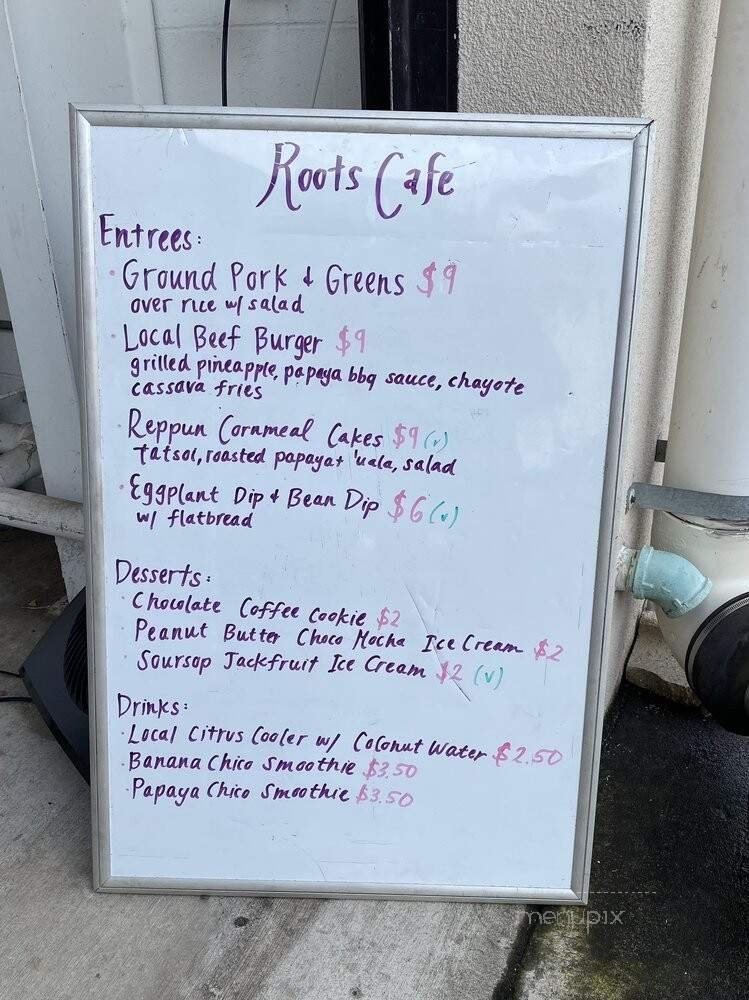 Roots Cafe
Entrees:
· Ground Pork & Greens $9
over rice w/ salad
· Local Beef Burger $9
grilled pineapple, papaya bbq sauce, chayote
cassava fries
· Reppun Cornmeal Cakes $9 (v)
tatsoi, roasted papaya + 'uala, salad
· Eggplant Dip & Bean Dip $6 (v)
w/ flatbread
Desserts:
· Chocolate Coffee Cookie $2
· Peanut Butter Choco Mocha Ice Cream $2
· Soursop Jackfruit Ice Cream $2 (v)
Drinks:
· Local Citrus Cooler w/ Coconut Water $2.50
· Banana Chico Smoothie $3.50
· Papaya Chico Smoothie $3.50
menupix